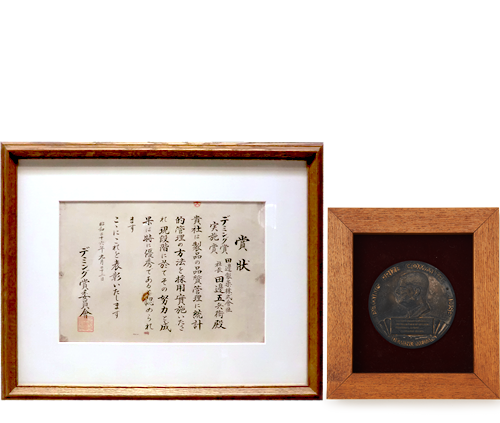 賞状
デミング賞
実施賞
田邊製薬株式会社
社長 田邊五兵衛殿
貴社は製品の品質管理に統計
的管理の方法を採用実施いたさ
れ現段階に於てその努力と成
果は特に優秀であると認められ
ます
こゝにこれを表彰いたします
昭和二十六年九月二十二日
デミング賞委員會